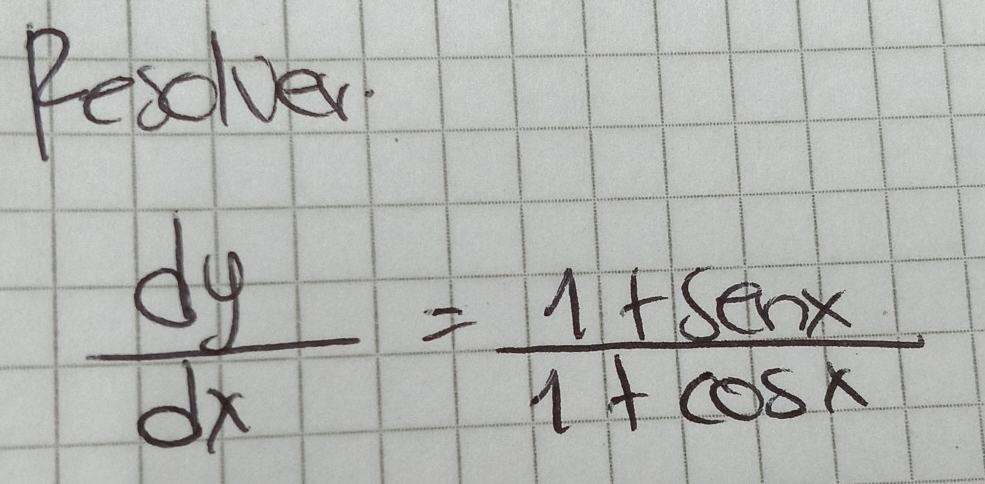 Resolver.
dy/dx = (1 + sen x)/(1 + cos x)